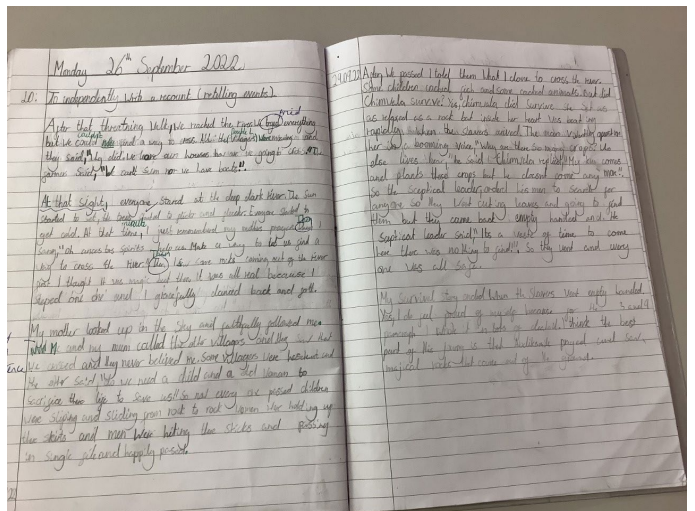 Monday 26th September 2022
LO: To independently write a recount (retelling events)
After that threatning Walk, we reached the river. We tried everything
but we could not find a way to cross. Now the villagers were
they said, "Why did we leave our houses how are we going to cross." The
farmer said, "I can't swim nor we have boats!"
At that Slight, everyone stared at the deep dark River. The Sun
started to set, its beam to flicks and flicker. Everyone started to
get cold. At that time, I just remembered my mothers prayer
Sorry, "oh ancestors spirits help us Make a way to let us find a
way to cross the River." Then rocks coming out of the River
I thought it was magic but then it was all real because I
steped one one and I gloriefully danced back and forth.
My mother looked up in the sky and faithfully followed me
and my mum called the other villagers and she said that
We crossed and they never belived me. Some villagers were hesitant and
the other said "do we need a child and a old Woman to
Sacrifice thier life to save us!" So not every one passed children
were sliping and Sliding from rock to rock Women were holding up
thier skirts and men were hiting thier sticks and passing
in single file and happily passed.
29.09.22 After We passed I told them What I done to cross the river.
Some children cooked fish and some cooked animals. But did
Chimwala survive? Yes, chimwala did survive She set us
as relaxed as a rock but inside her heart was beating
rapidly when the slavers arrived. The main question
her in a booming voice "Why are there so many crops? Who
else lives here" he said. Chimwala replied "My boy comes
and plants these crops but he doesnt come any more".
So the Sceptical leader orderd his men to search for
anyone so they Went cuting leaves and going to find
them but they came back empty handed and the
Sceptical leader said "Its a waste of time to come
here there was nothing to find!" So they went and every
one Was all safe.
My Survival story ended When the Slavers Went empty handed.
Yes, I do feel proud of myself because for the 3 and 4
paragraph I wrote it on both of I think the best
part of this is that prayed and saw
magical rocks that came out of the ground.